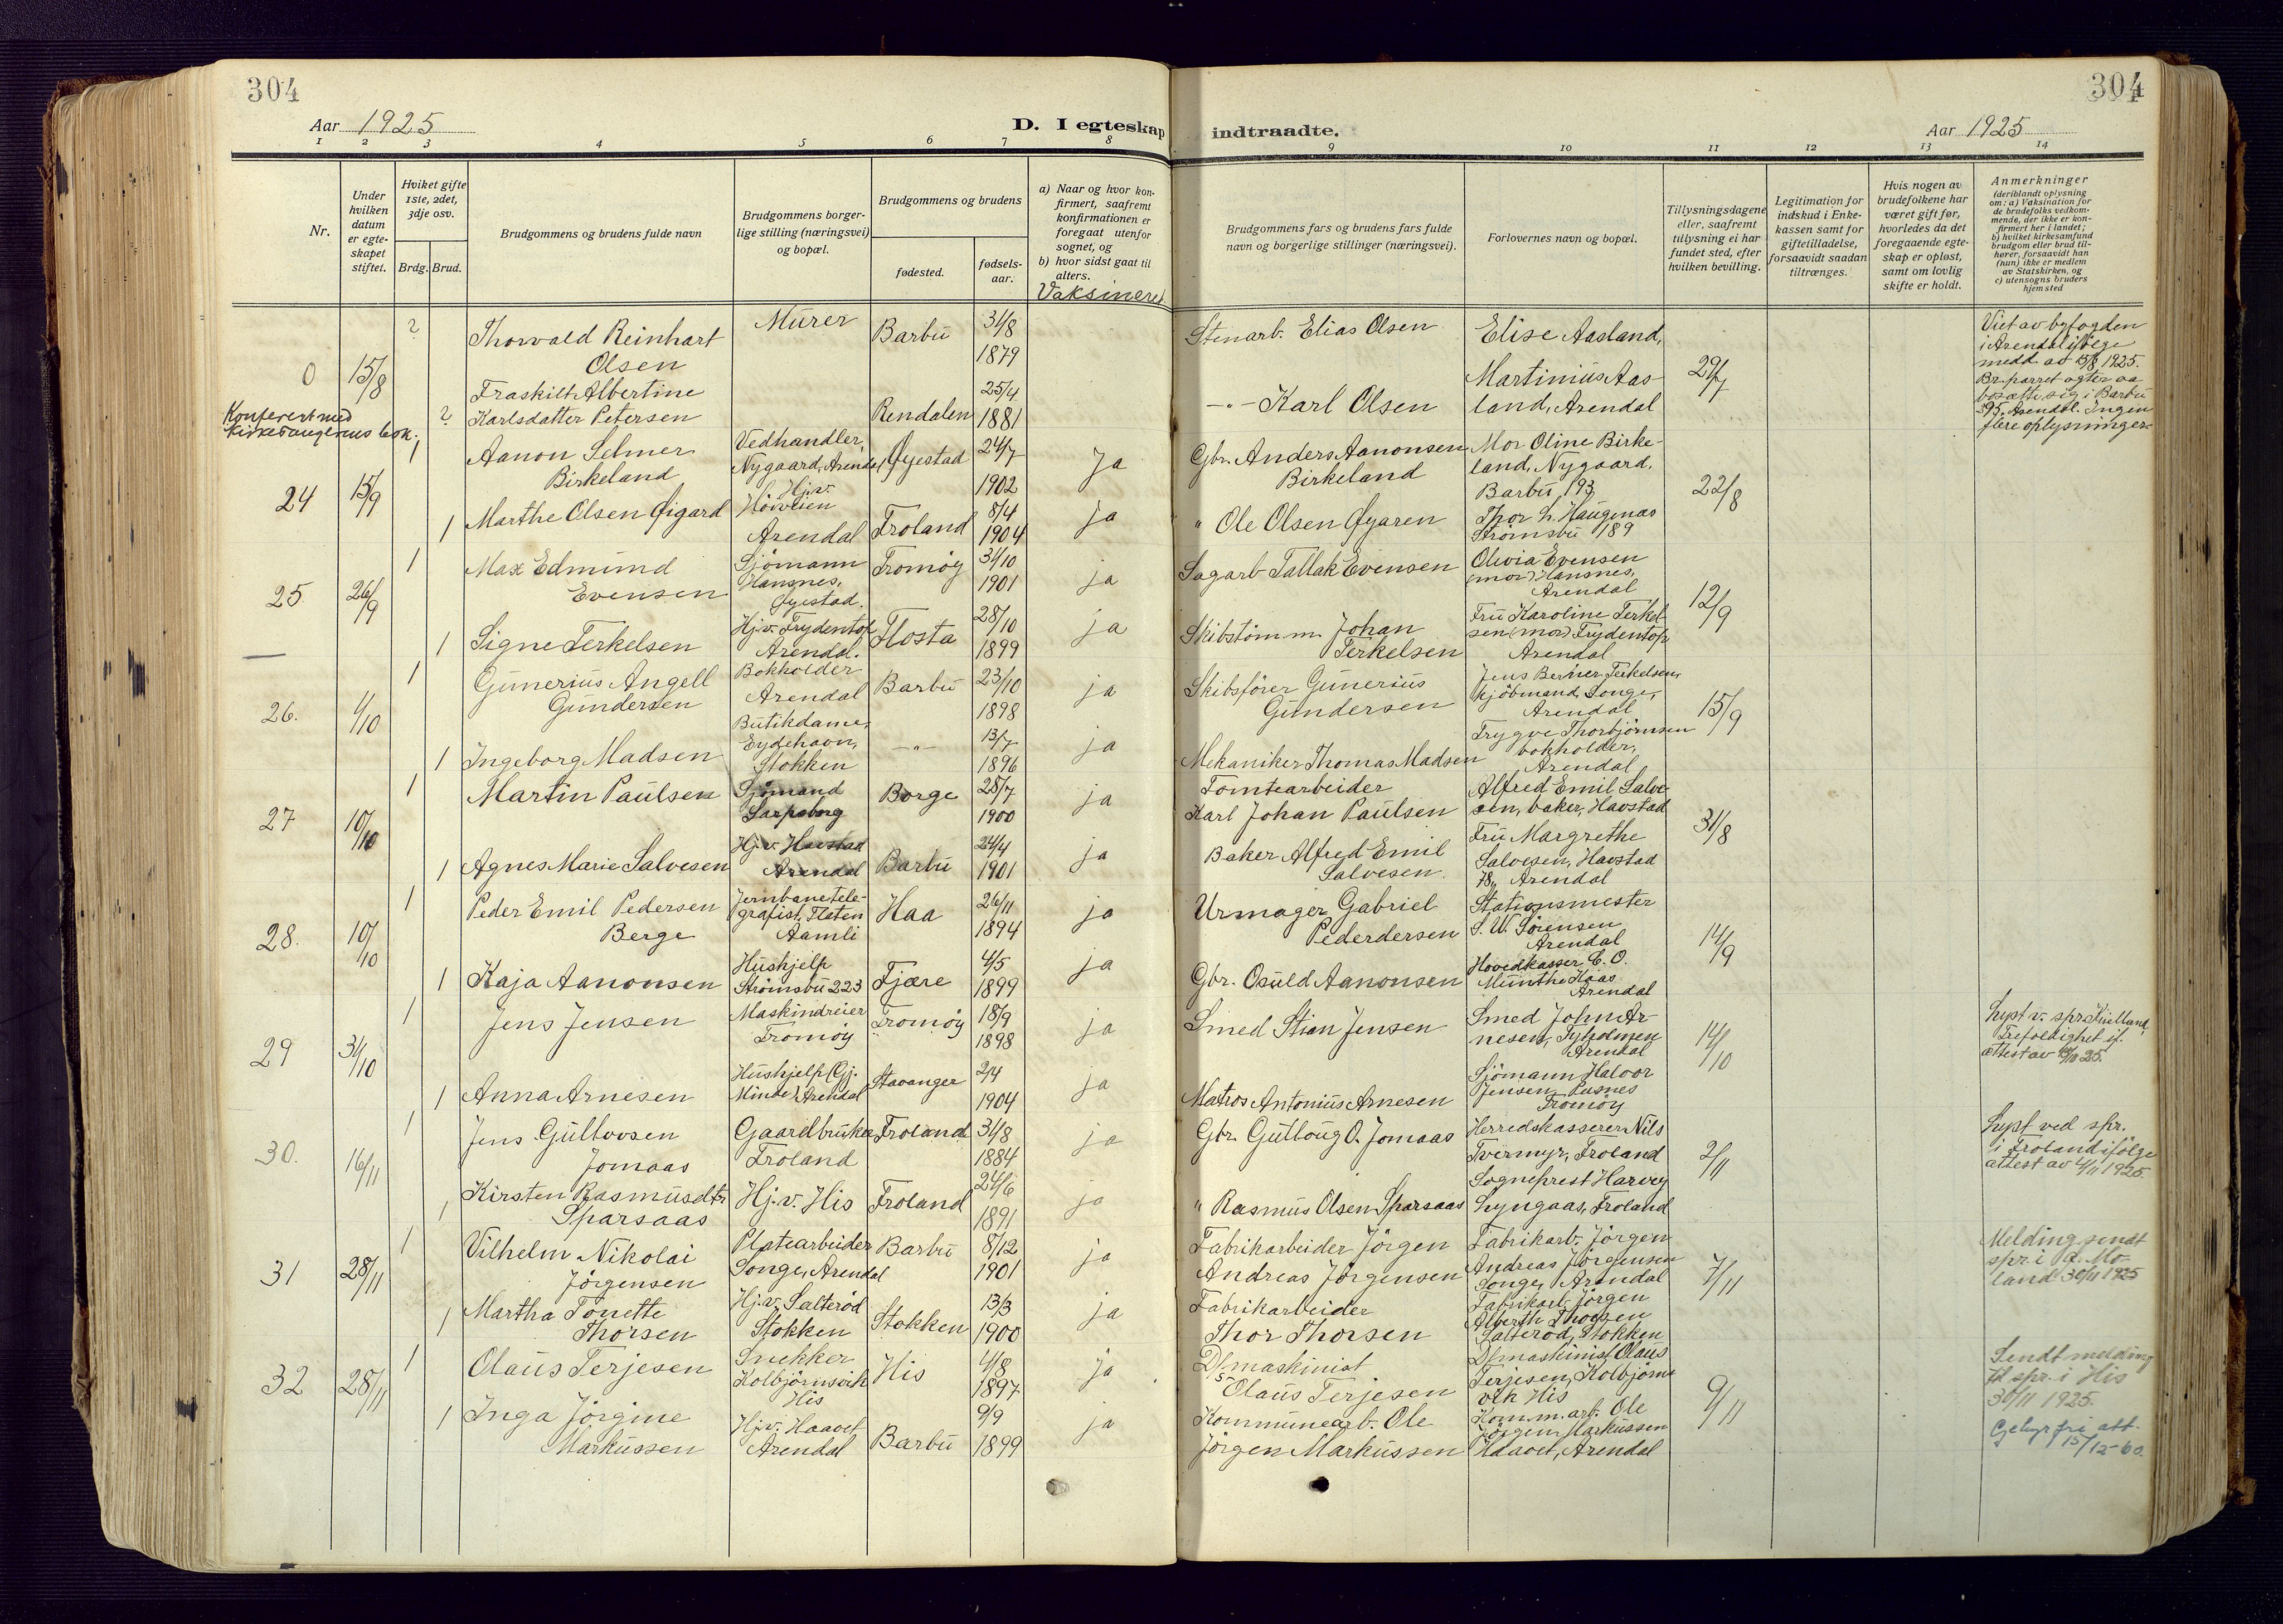 304
304
Aar 1925
D. I egteskap indtraadte.
Aar 1925
1 2 3 4 5 6 7 8 9 10 11 12 13 14
Nr.
Under hvilken datum er egteskapet stiftet.
Hviket gifte 1ste, 2det, 3dje osv.
Brdg. Brud.
Brudgommens og brudens fulde navn
Brudgommens borgerlige stilling (næringsvei) og bopæl.
Brudgommens og brudens
fødested.
fødselsaar.
a) Naar og hvor konfirmert, saafremt konfirmationen er foregaat utenfor sognet, og
b) hvor sidst gaat til alters.
Vaksineret
Brudgommens fars og brudens fars fulde navn og borgerlige stillinger (næringsvei).
Forlovernes navn og bopæl.
Tillysningsdagene eller, saafremt tillysning ei har fundet sted, efter hvilken bevilling.
Legitimation for indskud i Enkekassen samt for giftetilladelse, forsaavidt saadan tiltrænges.
Hvis nogen av brudefolkene har været gift før, hvorledes da det foregaaende egteskap er opløst, samt om lovlig skifte er holdt.
Anmerkninger
(deriblandt oplysning om: a) Vaksination for de brudefolks vedkommende, der ikke er konfirmert her i landet;
b) hvilket kirkesamfund brudgom eller brud tilhører, forsaavidt han (hun) ikke er medlem av Statskirken, og
c) utensogns bruders hjemsted
0 15/8 ?
Thorvald Reinhart
Olsen
Murer
Barbu
31/8
1879
Stenarb. Elias Olsen
Elise Aasland,
Martinius Aas-
land, Arendal
29/7
Viet av byfogden
i Arendal ifølge
medd. av 15/8 1925.
Br.parret agter aa
bosætte sig i Barbu
95, Arendal. Ingen
flere oplysninger
?
Fraskilt Albertine
Karlsdatter Petersen
Rendalen
25/4
1881
-"- Karl Olsen
Konferert med
24 15/9 1
Aanon Selmer
Birkeland
Vedhandler,
Nygaard, Arendal
Øyestad
24/7
1902
Ja
Gbr. Anders Aanonsen
Birkeland
Mor Oline Birke-
land, Nygaard,
Barbu 193
22/8
1
Marthe Olsen Øigard
Hj.v.
Arendal
Froland
8/4
1904
ja
" Ole Olsen Øygaren
Thor L. Haugenæs
Strømsbu 189
25 26/9 1
Max Edmund
Evensen
Sjömann
Hansnes,
Øyestad.
Tromöy
31/10
1901
ja
Sagarb Tallak Evensen
Olivia Evensen
(mor) Hansnes,
Arendal
12/9
1
Signe Terkelsen
Hj.v. Frydentop
Arendal.
Flosta
28/10
1899
ja
Skibstömm. Johan
Terkelsen
Fru Karoline Terkel-
sen (mor) Frydentop,
Arendal
26. 1/10 1
Gunerius Angell
Gundersen
Bokholder
Arendal
Barbu
23/10
1898
ja
Skibsförer Gunerius
Gundersen
Jens Berner Terkelsen,
kjöbmand, Songe,
Arendal
15/9
1
Ingeborg Madsen
Butikdame,
Eydehavn,
Stokken
-"-
13/7
1896
ja
Mekaniker Thomas Madsen
Trygve Thorbjörnsen
bokholder,
Arendal
27 10/10 1
Martin Paulsen
Sjömand
Sarpsborg
Borge
28/7
1900
ja
Tomtearbeider
Karl Johan Paulsen
Alfred Emil Salve-
sen, baker, Havstad
31/8
1
Agnes Marie Salvesen
Hj.v. Havstad
Arendal
Barbu
24/4
1901
ja
Baker Alfred Emil
Salvesen.
Fru Margrethe
Salvesen, Havstad
78, Arendal
28. 10/10 1
Peder Emil Pedersen
Berge
Jernbanetele-
grafist, Flaten
Aamli
Haa
26/11
1894
ja
Urmager Gabriel
Pederdersen
Stationsmester
S. W. Sörensen
Arendal
14/9
1
Kaja Aanonsen
Hushjelp
Strømsbu 223
Fjære
4/5
1899
ja
Gbr. Osuld Aanonsen
Hovedkasser C. O.
Munthe Kaas
Arendal
29 31/10 1
Jens Jensen
Maskindreier
Tromöy
Tromöy
18/9
1898
ja
Smed Stian Jensen
Smed John Ar-
nesen, Tyholmen
Arendal
14/10
Lyst v. spr. Kielland,
Trefoldighet if.
attest av 25.
1
Anna Arnesen
Hushjelp (Gj.
Minde) Arendal
Stavanger
2/4
1904
ja
Matros Antonius Arnesen
Sjömann Halvor
Jensen, Pusnes
Tromöy
30. 16/11 1
Jens Gulbvosen
Jomaas
Gaardbruker
Froland
Froland
31/8
1884
ja
Gbr. Gulloug O. Jomaas
Herredskasserer Nils
Tveimyr, Froland
2/11
Lyst ved spr.
i Froland ifölge
attest av 4/11 1925.
1
Kirsten Rasmusdtr
Sparsaas
Hj.v. His
Froland
24/6
1891
ja
" Rasmus Olsen Sparsaas
Sogneprest Harvey
Lyngaas, Froland
31 28/11 1
Vilhelm Nikolai
Jörgensen
Platearbeider
Songe, Arendal
Barbu
8/12
1901
ja
Fabrikarbeider Jörgen
Andreas Jörgensen
Fabrikarb. Jörgen
Andreas Jörgensen
Songe, Arendal
7/11
Melding sendt
spr. i A. Mo-
land 30/11 1925
1
Martha Tonette
Thorsen
Hj.v. Salteröd
Stokken
Stokken
13/3
1900
ja
Fabrikarbeider
Thor Thorsen
Fabrikarb. Jörgen
Alberth Thorsen
Salteröd, Stokken
32 28/11 1
Olaus Terjesen
Snekker
Kolbjörnsvik
His
His
4/8
1897
ja
D/smaskinist
Olaus Terjesen
D/smaskinist Olaus
Terjesen, Kolbjörns-
vik His
9/11
Sendt melding
til spr. i His
30/11 1925.
Gebyrfri att.
15/12-60.
1
Inga Jörgine
Markussen
Hj.v. Haavet
Arendal
Barbu
9/9
1899
ja
Kommunearb. Ole
Jörgen Markussen
Komm.arb. Ole
Jörgen Markussen
Haavet, Arendal